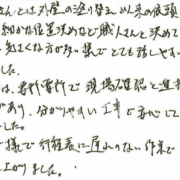 さんとは外壁の塗り替え の依頼
細かな位置決めなど職人さんと決めて
気さくな方が多い様でとても話しやすい
した。
は、着所要所で現場確認と進
があり、分かりやすい工事で安心して
した。
様で行程表に遅れのない作業で
上がりました。